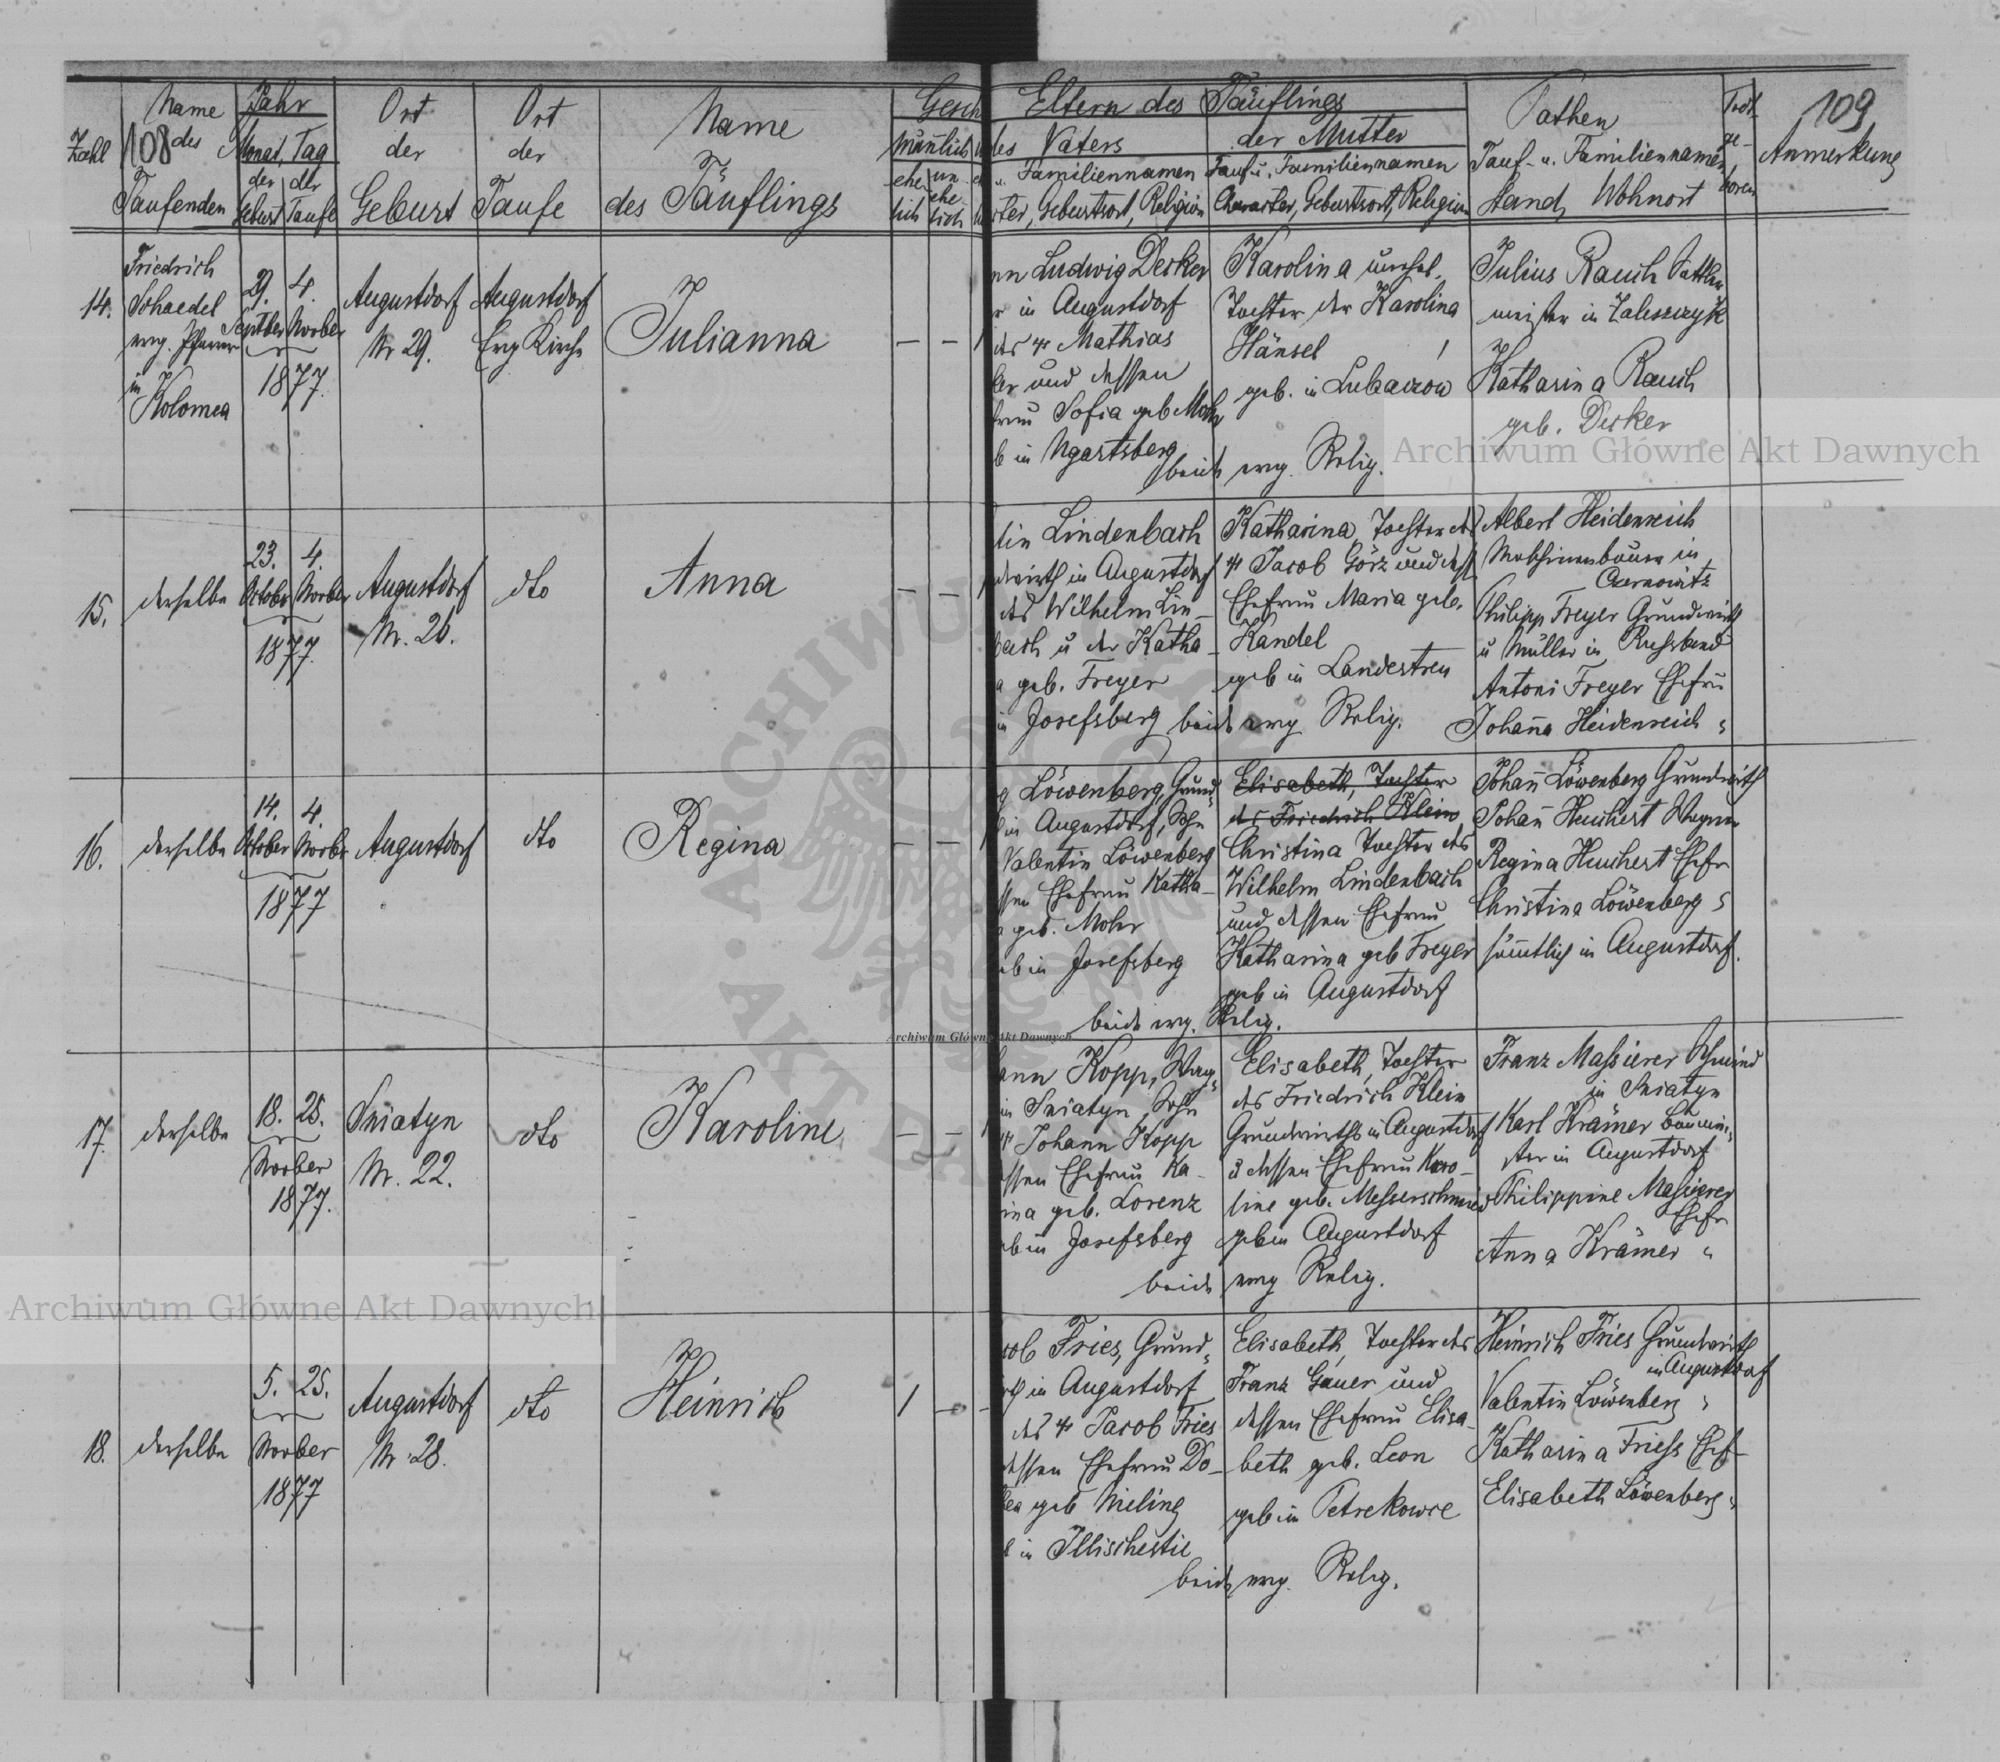 Zahl
108
Name
des
Taufenden
Jahr
Monat, Tag
der
Geburt
der
Taufe
Ort
der
Geburt
Ort
der
Taufe
Name
des Täuflings
Gesch
Männlich
ehe
lich
un
ehe
lich
Eltern des Täuflings
des Vaters
u. Familiennamen
Geburtsort, Religion
der Mutter
Tauf u. Familiennamen
Charakter, Geburtsort, Religion
Pathen
Tauf- u. Familiennamen
Stand, Wohnort
Todt
ge-
boren
109
Anmerkung
14.
Friedrich
Schaedel
evg. Pfarrer
in
Kolomea
29.
Septber
4.
Novber
1877.
Augustdorf
Nr 29.
Augustdorf
Evg Kirche
Julianna
— — 1
nn Ludwig Decker
r in Augustdorf
des Mathias
ker und dessen
frau Sofia geb Mohr
b in Ugartsberg
beide evg. Relig.
Karolina unehel.
Tochter der Karolina
Hänsel
geb. in Lubaczow
Julius Rauch Sattler
meister in Zaleszczyk
Katharina Rauch
geb. Decker
15.
derselbe
23.
October
4.
Novber
1877.
Augustdorf
Nr. 26.
dto
Anna
— —
tin Lindenbach
dwirth in Augustdorf
des Wilhelm Lin-
bach u der Katha-
a geb. Freyer
in Josefsberg beide evg Relig.
Katharina, Tochter des
Jacob Görz und dess
Ehefrau Maria geb.
Kandel
geb in Landestreu
Albert Heidenreich
Maschinenbauer in
Czernowitz
Philipp Freyer Grundwirth
u Müller in Russland
Antoni Freyer Ehefr
Johaña Heidenreich "
16.
derselbe
14.
October
4.
Novber
1877
Augustdorf
dto
Regina
— —
g Löwenberg, Grund-
in Augustdorf, Sohn
Valentin Löwenberg
ssen Ehefrau Katha-
a geb. Mohr
eb in Josefsberg
beide evg. Relig.
Elisabeth, Tochter
des Friedrich Klein
Christina Tochter des
Wilhelm Lindenbach
und dessen Ehefrau
Katharina geb Freyer
geb in Augustdorf
Johañ Löwenberg Grundwirth
Johañ Heuchert Wagner
Regina Heuchert Ehefr
Christina Löwenberg "
sämtlich in Augustdorf.
17.
derselbe
18. 25.
Novber
1877.
Sniatyn
Nr. 22.
dto
Karoline
— —
ann Kopp, Wag-
in Sniatyn, Sohn
Johann Kopp
essen Ehefrau Ka-
ina geb. Lorenz
eb in Josefsberg
beide evg Relig.
Elisabeth, Tochter
des Friedrich Klein
Grundwirths in Augustdorf
u dessen Ehefrau Karo-
line geb. Messerschmied
geb in Augustdorf
Franz Massierer Schmied
in Sniatyn
Karl Krämer
in Augustdorf
Philippine Massierer
Ehefr
Anna Krämer "
18.
derselbe
5. 25.
Novber
1877
Augustdorf
Nr. 28.
dto
Heinrich
1 —
cob Fries, Grund-
rth in Augustdorf
des Jacob Fries
dessen Ehefrau Do-
thea geb Nieling
b in Illischestie
beide evg. Relig.
Elisabeth, Tochter des
Franz Gauer und
dessen Ehefrau Elisa-
beth geb. Leon
geb in Petrekowce
Heinrich Fries Grundwirth
in Augustdorf
Valentin Löwenberg "
Katharina Friess Ehef-
Elisabeth Löwenberg "
Archiwum Główne Akt Dawnych
Archiwum Główne Akt Dawnych
Archiwum Główne Akt Dawnych